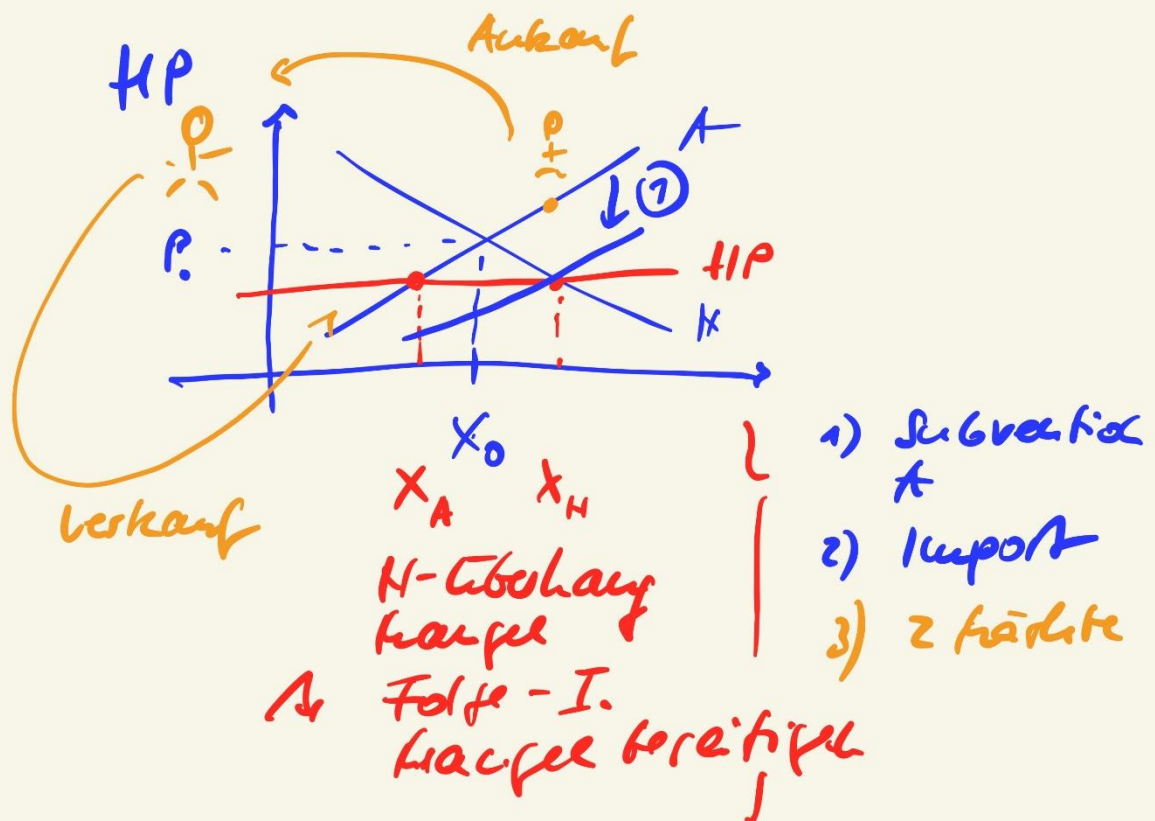 Ankauf
HP
A
①
P₀
HP
N
X₀
X_A X_N
Verkauf
N-Überhang
Mangel
Folge-I.
Mangel beseitigen
1) Subvention
A
2) Import
3) 2 Märkte